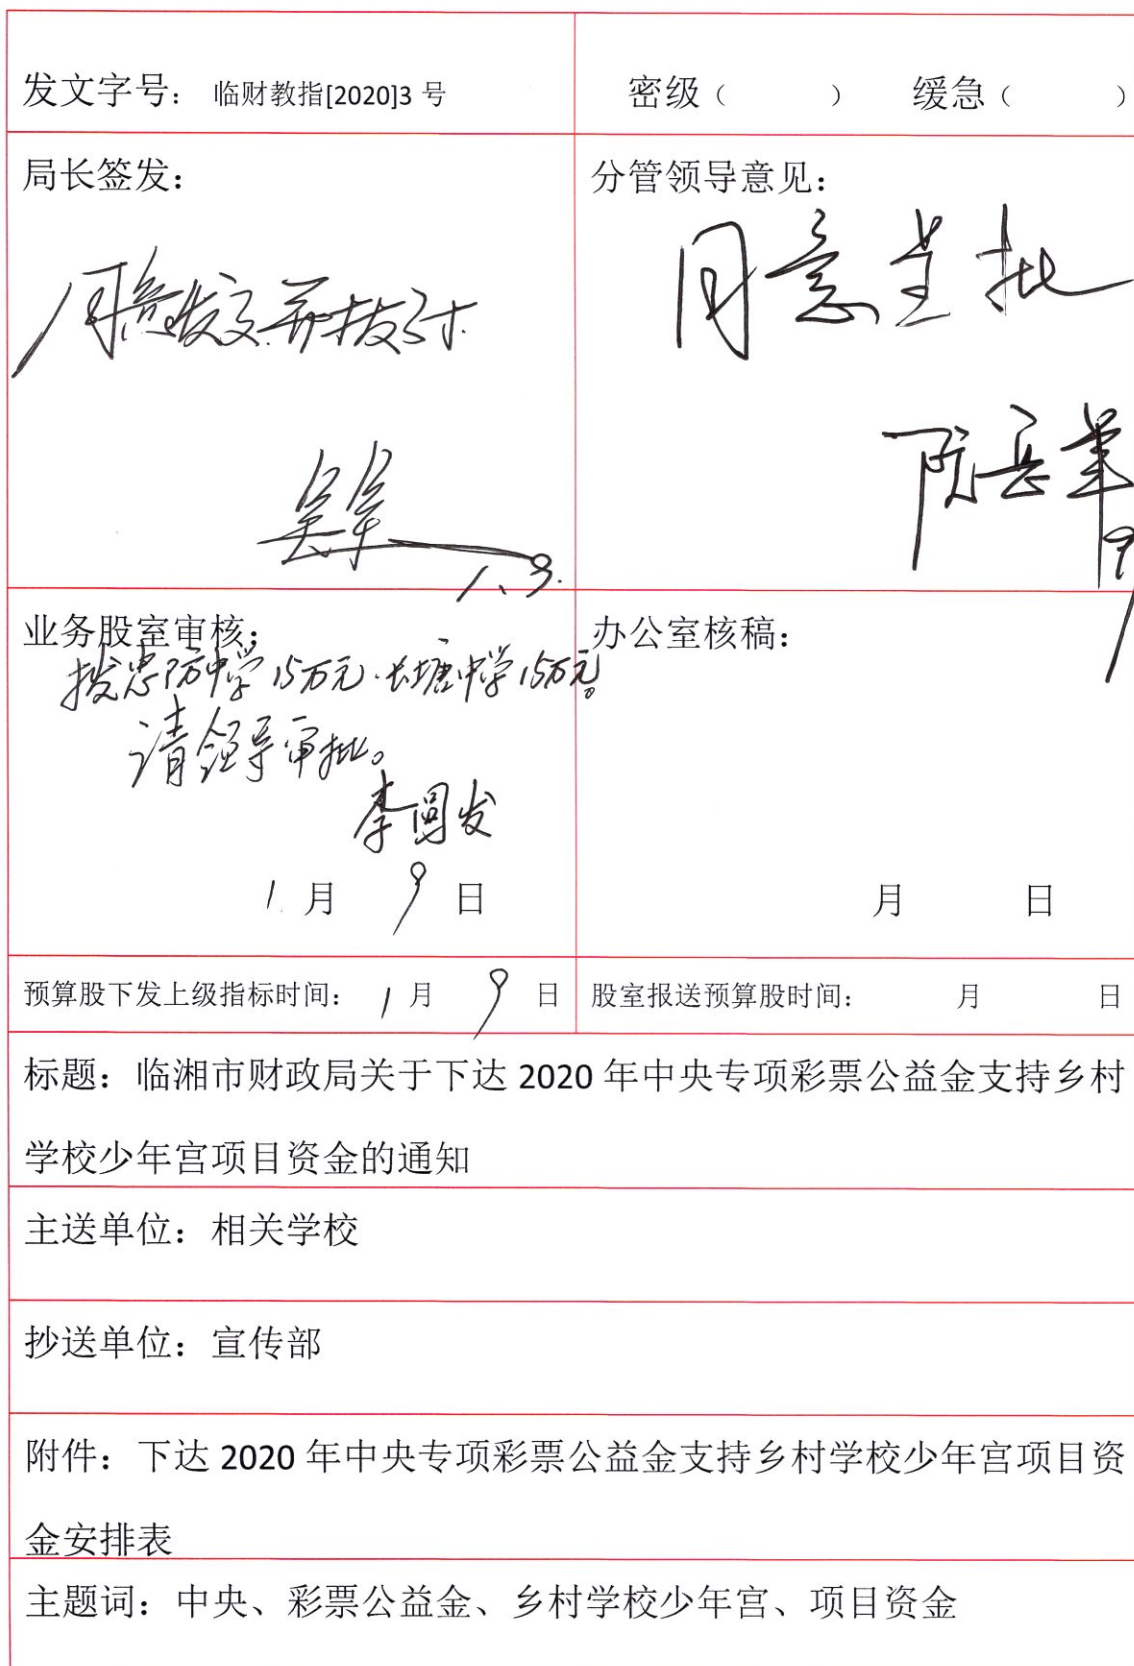 发文字号： 临财教指[2020]3 号
密级（ ） 缓急（ ）
局长签发：
同意发文并拨付.
1.9.
分管领导意见：
同意呈批
阮岳军
业务股室审核：
拨忠防中学15万元.长塘中学15万元。
请领导审批。
李国发
1 月 9 日
办公室核稿：
月 日
预算股下发上级指标时间： 1 月 9 日
股室报送预算股时间： 月 日
标题：临湘市财政局关于下达 2020 年中央专项彩票公益金支持乡村
学校少年宫项目资金的通知
主送单位：相关学校
抄送单位：宣传部
附件：下达 2020 年中央专项彩票公益金支持乡村学校少年宫项目资
金安排表
主题词：中央、彩票公益金、乡村学校少年宫、项目资金